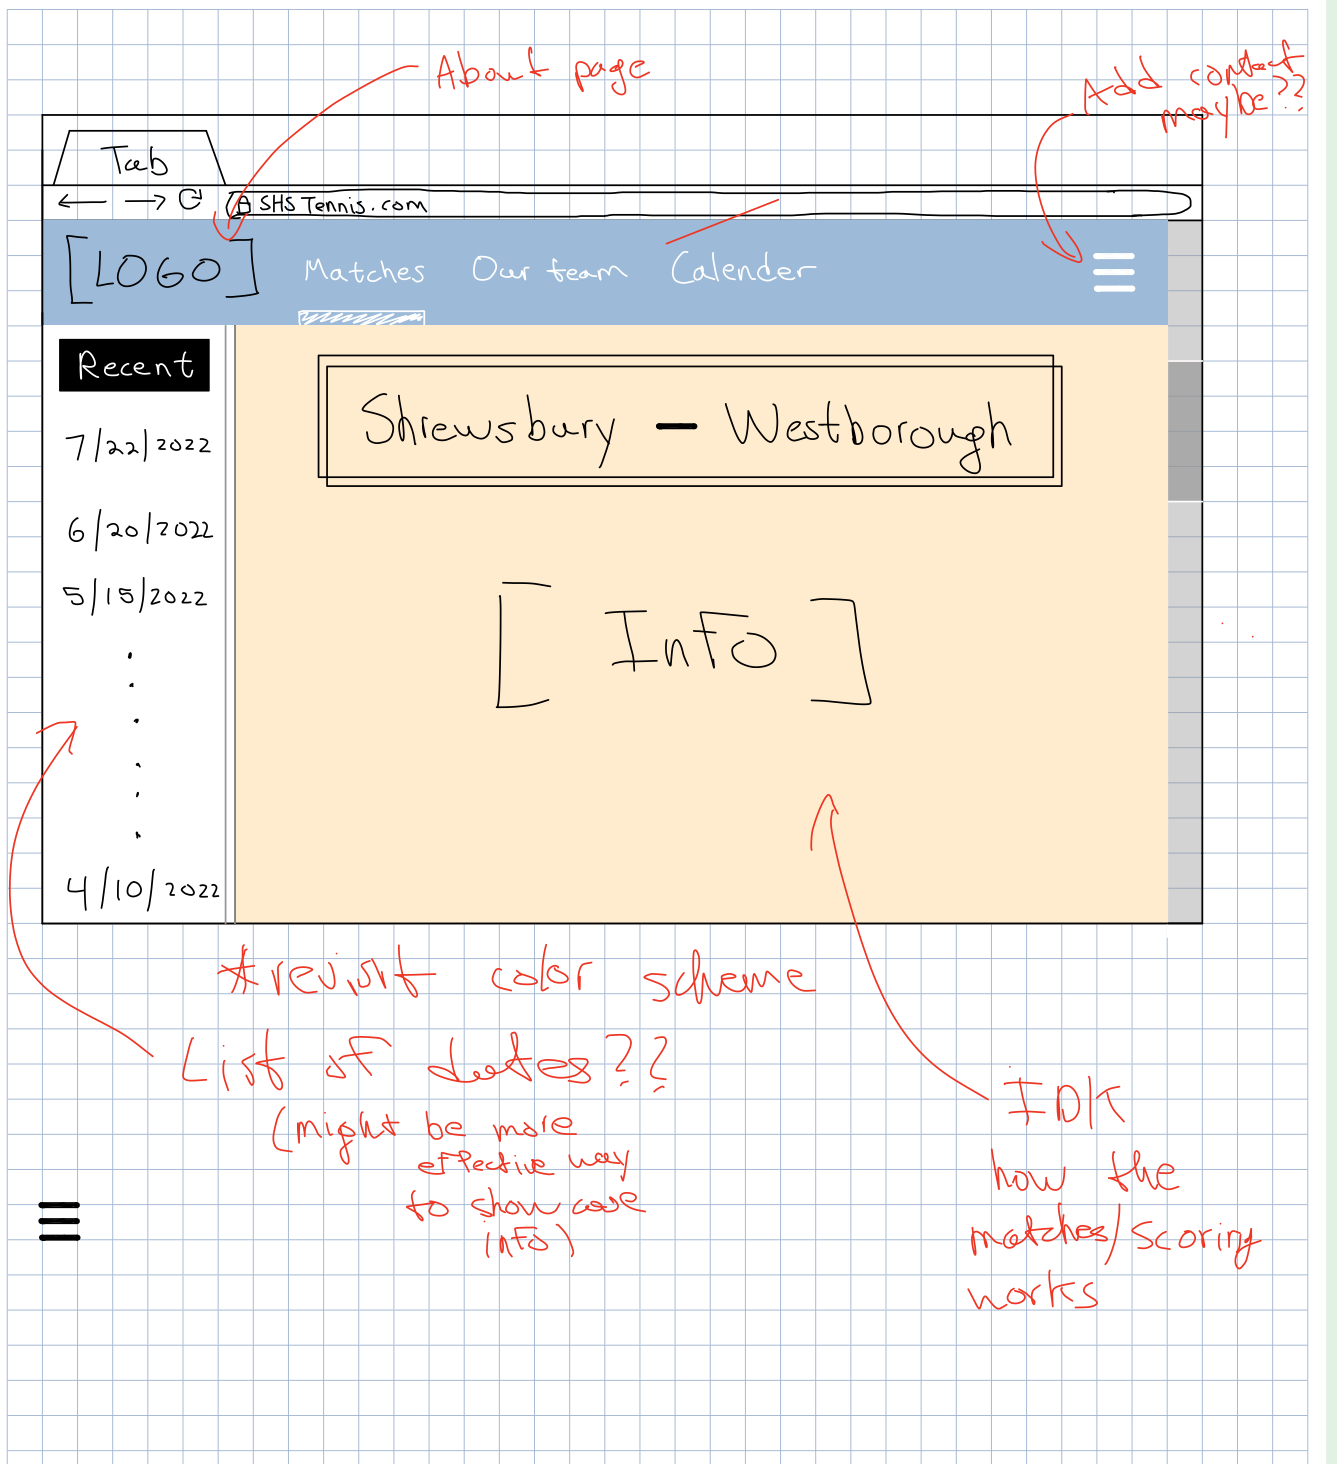 About page
Add contact
maybe??
Tab
SHS Tennis.com
[LOGO] Matches Our team Calender
Recent
7/22/2022
6/20/2022
5/15/2022
4/10/2022
Shrewsbury — Westborough
[Info]
*revisit color scheme
List of dates??
(might be more
effective way
to show case
info)
IDK
how the
matches/scoring
works